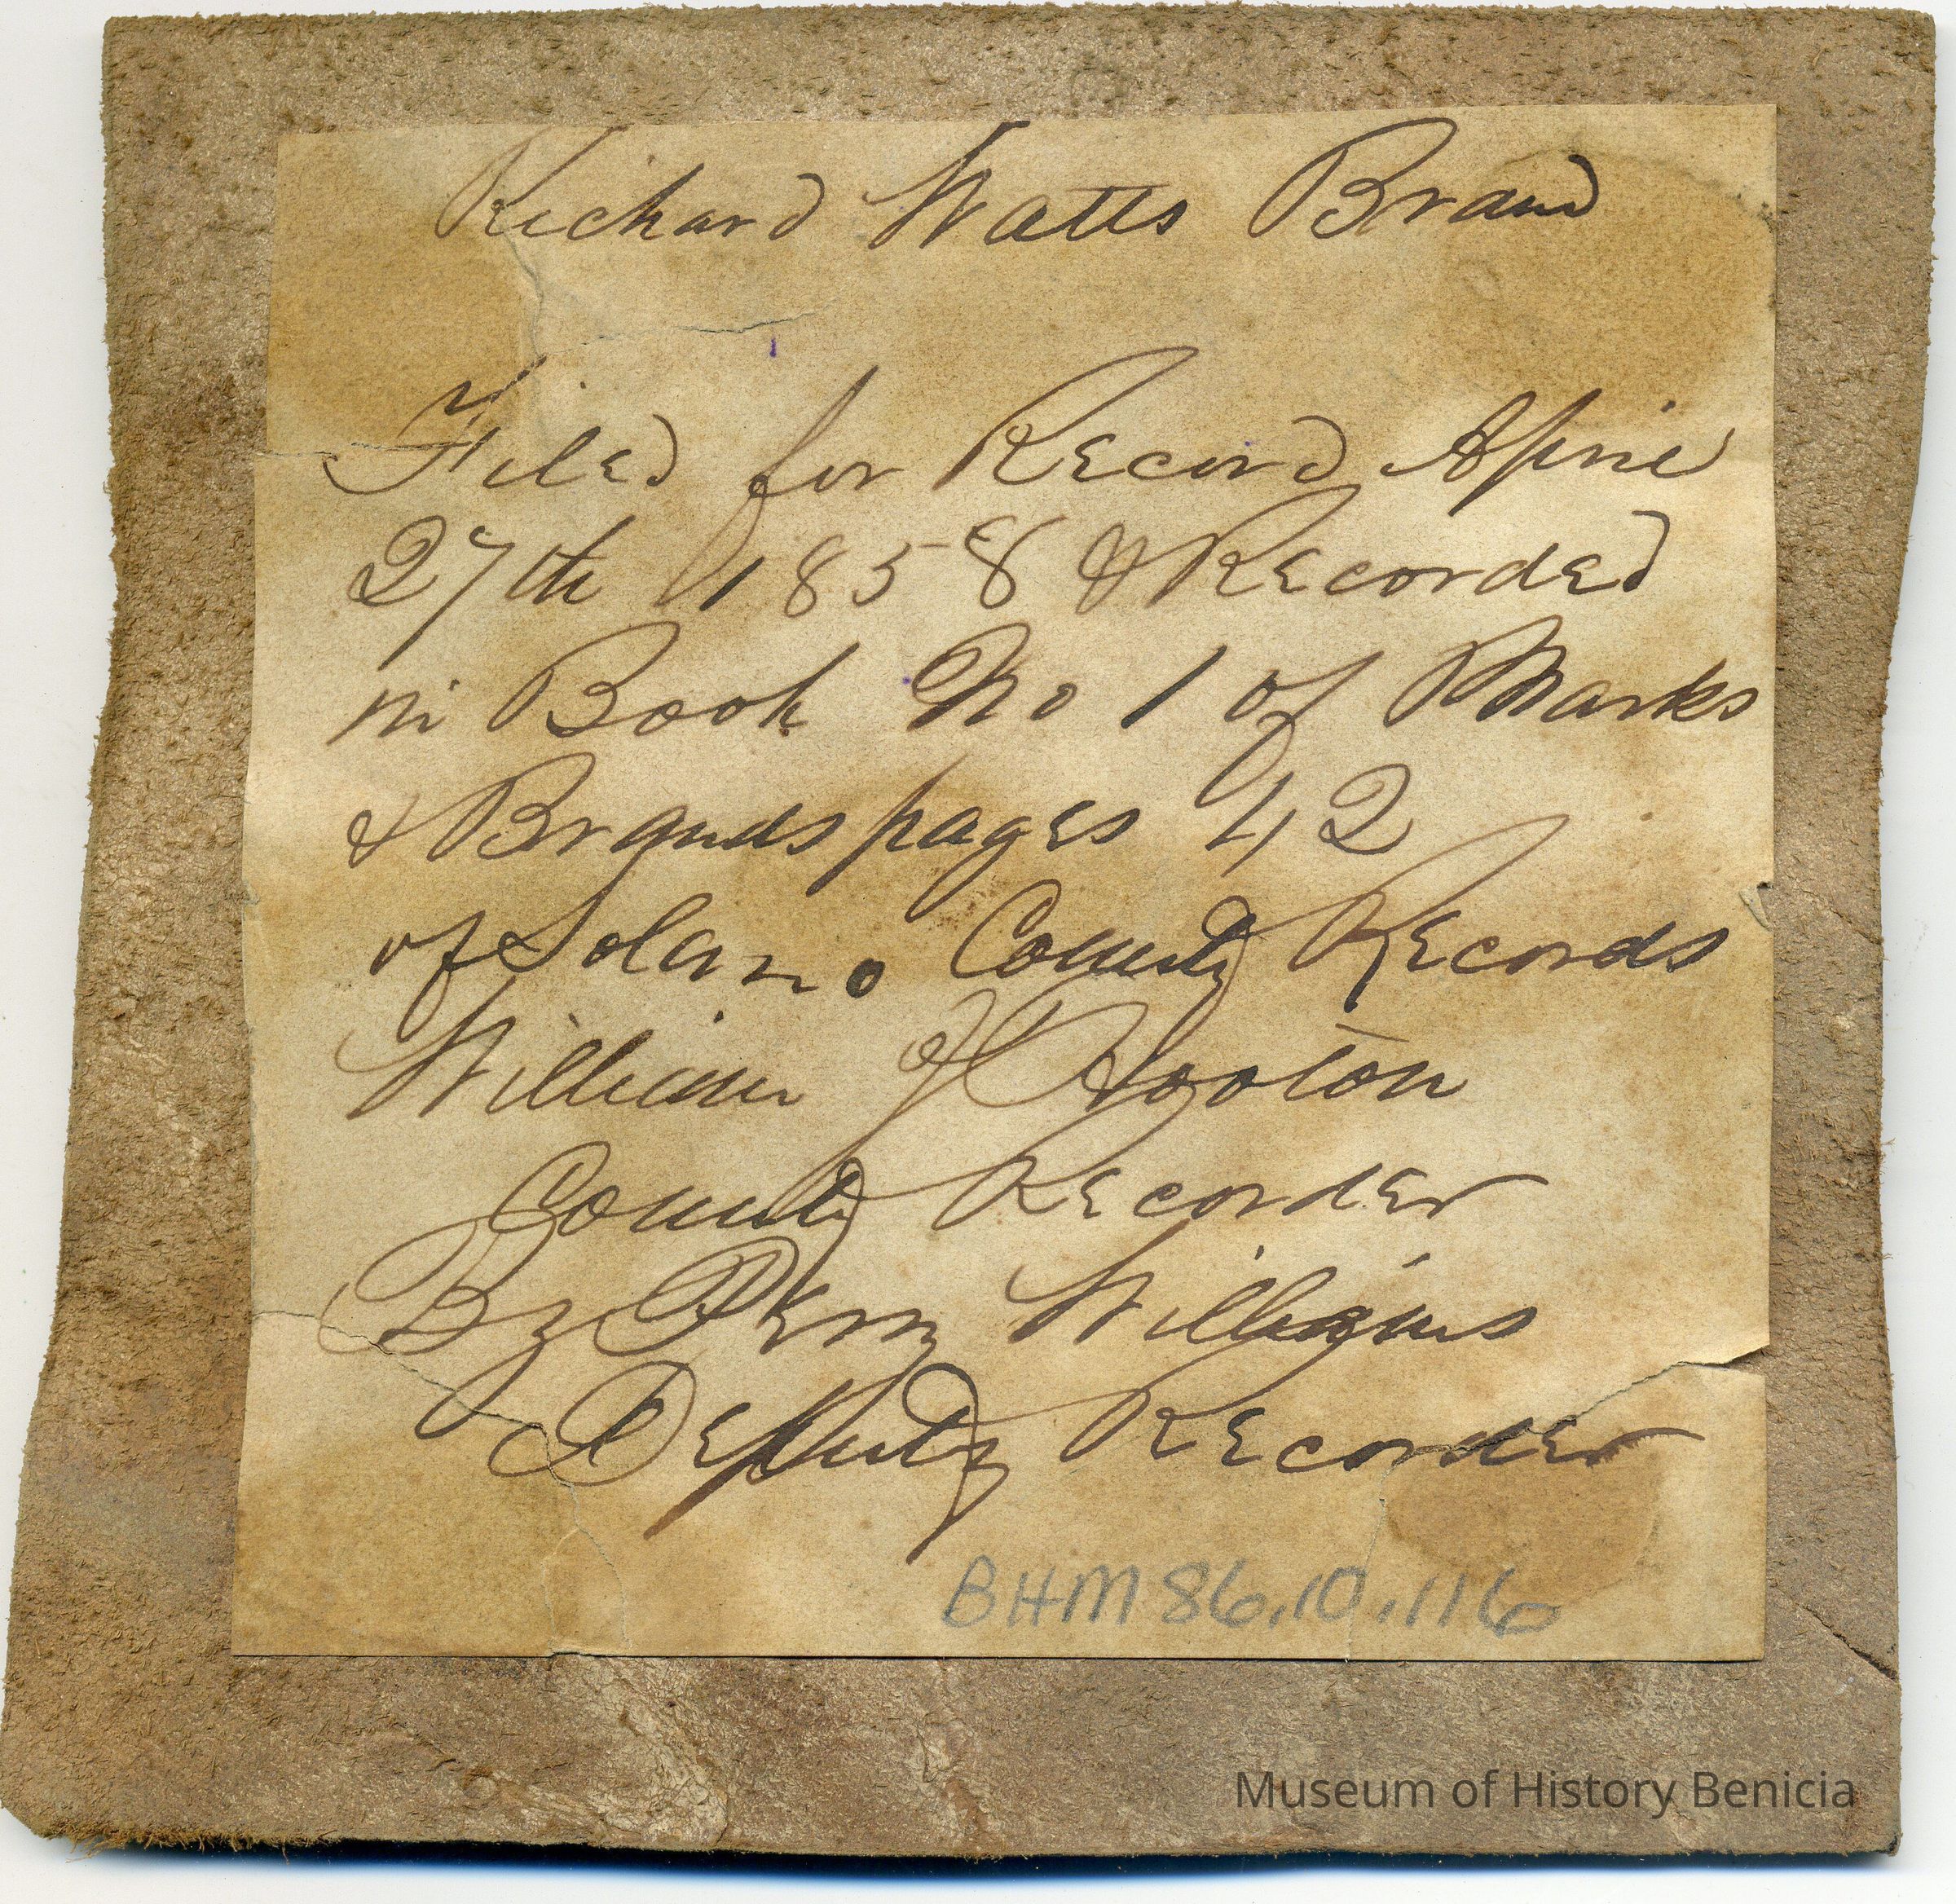 Richard Watts Brand
Filed for Record April
27th 1858 & Recorded
in Book No 1 of Marks
& Brands pages 42
of Solano County Records
William Hooton
County Recorder
By Perry Williams
Deputy Recorder
BHM 86.10.116
Museum of History Benicia